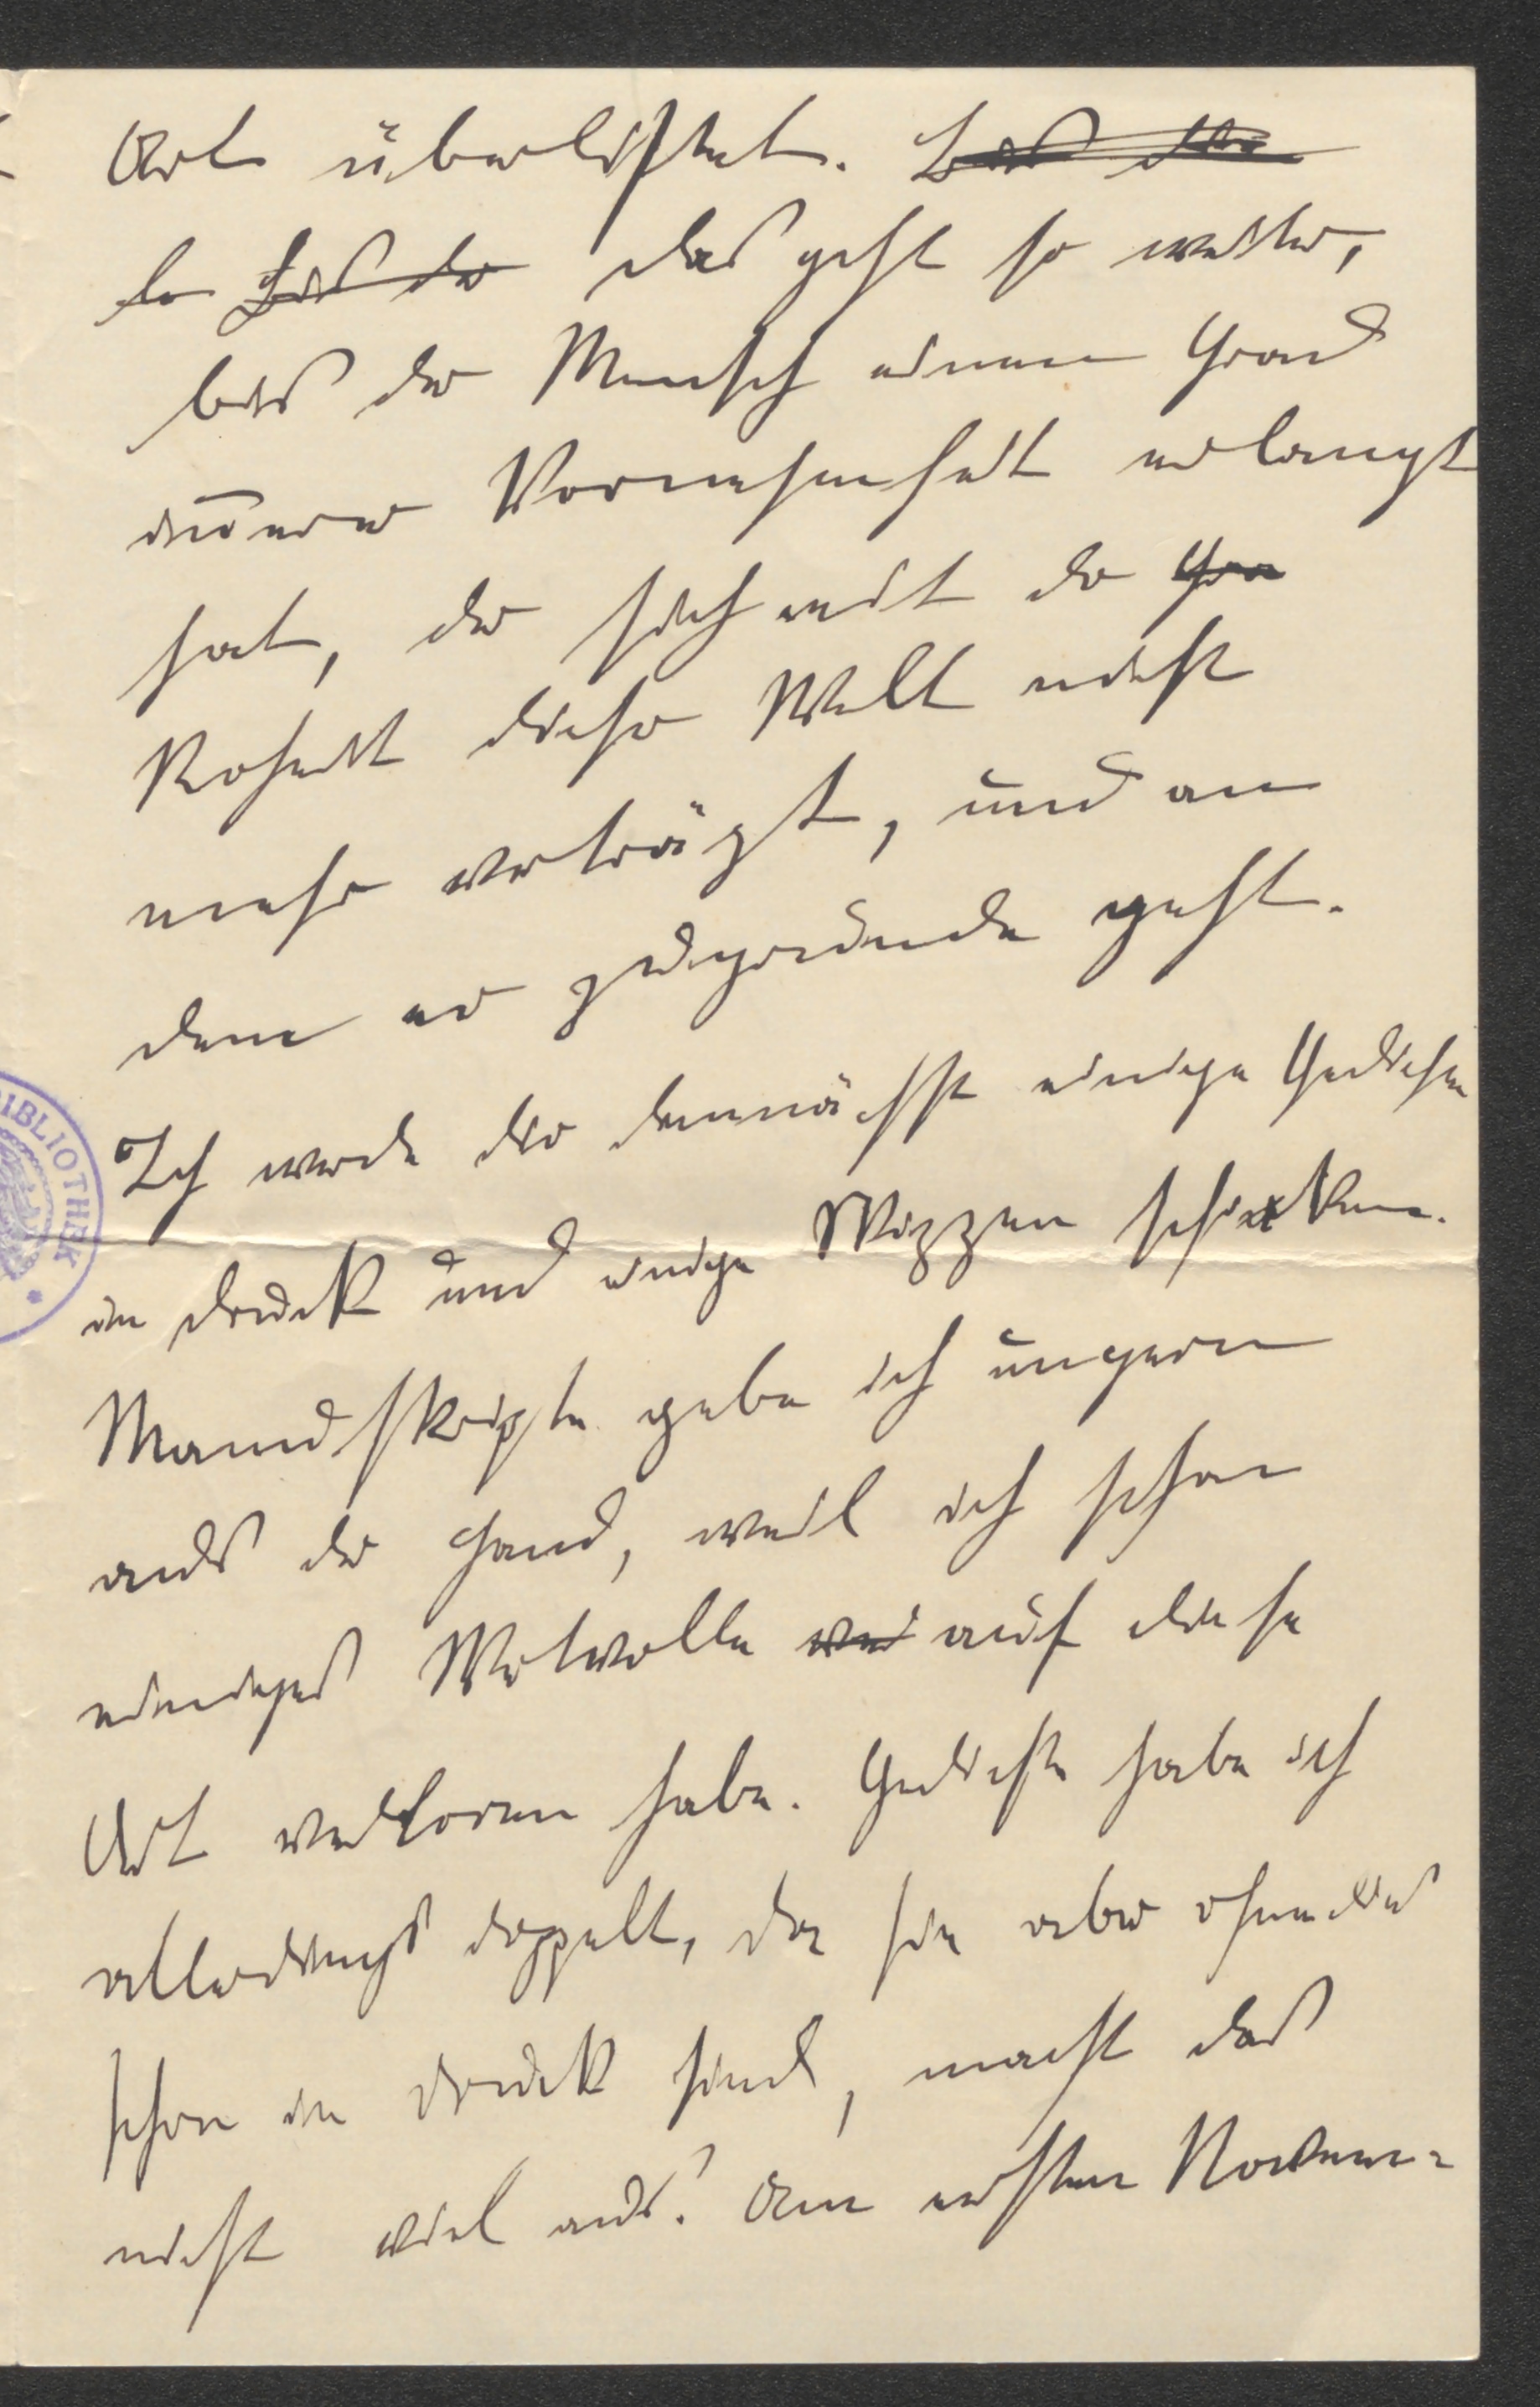 Art überlistet. Bis die
so Bis der das geht so weiter,
bis der Mensch einen Grad
innerer Vornehmheit erlangt
hat, der sich mit der Gra
Roheit dieser Welt nicht
mehr verträgt, und an
dem er zugrunde geht.
Ich werde dir demnächst einige Gedichte
im Druck und einige Skizzen schicken.
Manuskripte gebe ich ungern
aus der Hand, weil ich schon
einiges Wertvolle auf diese
Art verloren habe. Gedichte habe ich
allerdings doppelt, da sie aber ohnedies
schon im Druck sind, macht das
nicht viel aus. Am ersten Novem-
BIBLIOTHEK